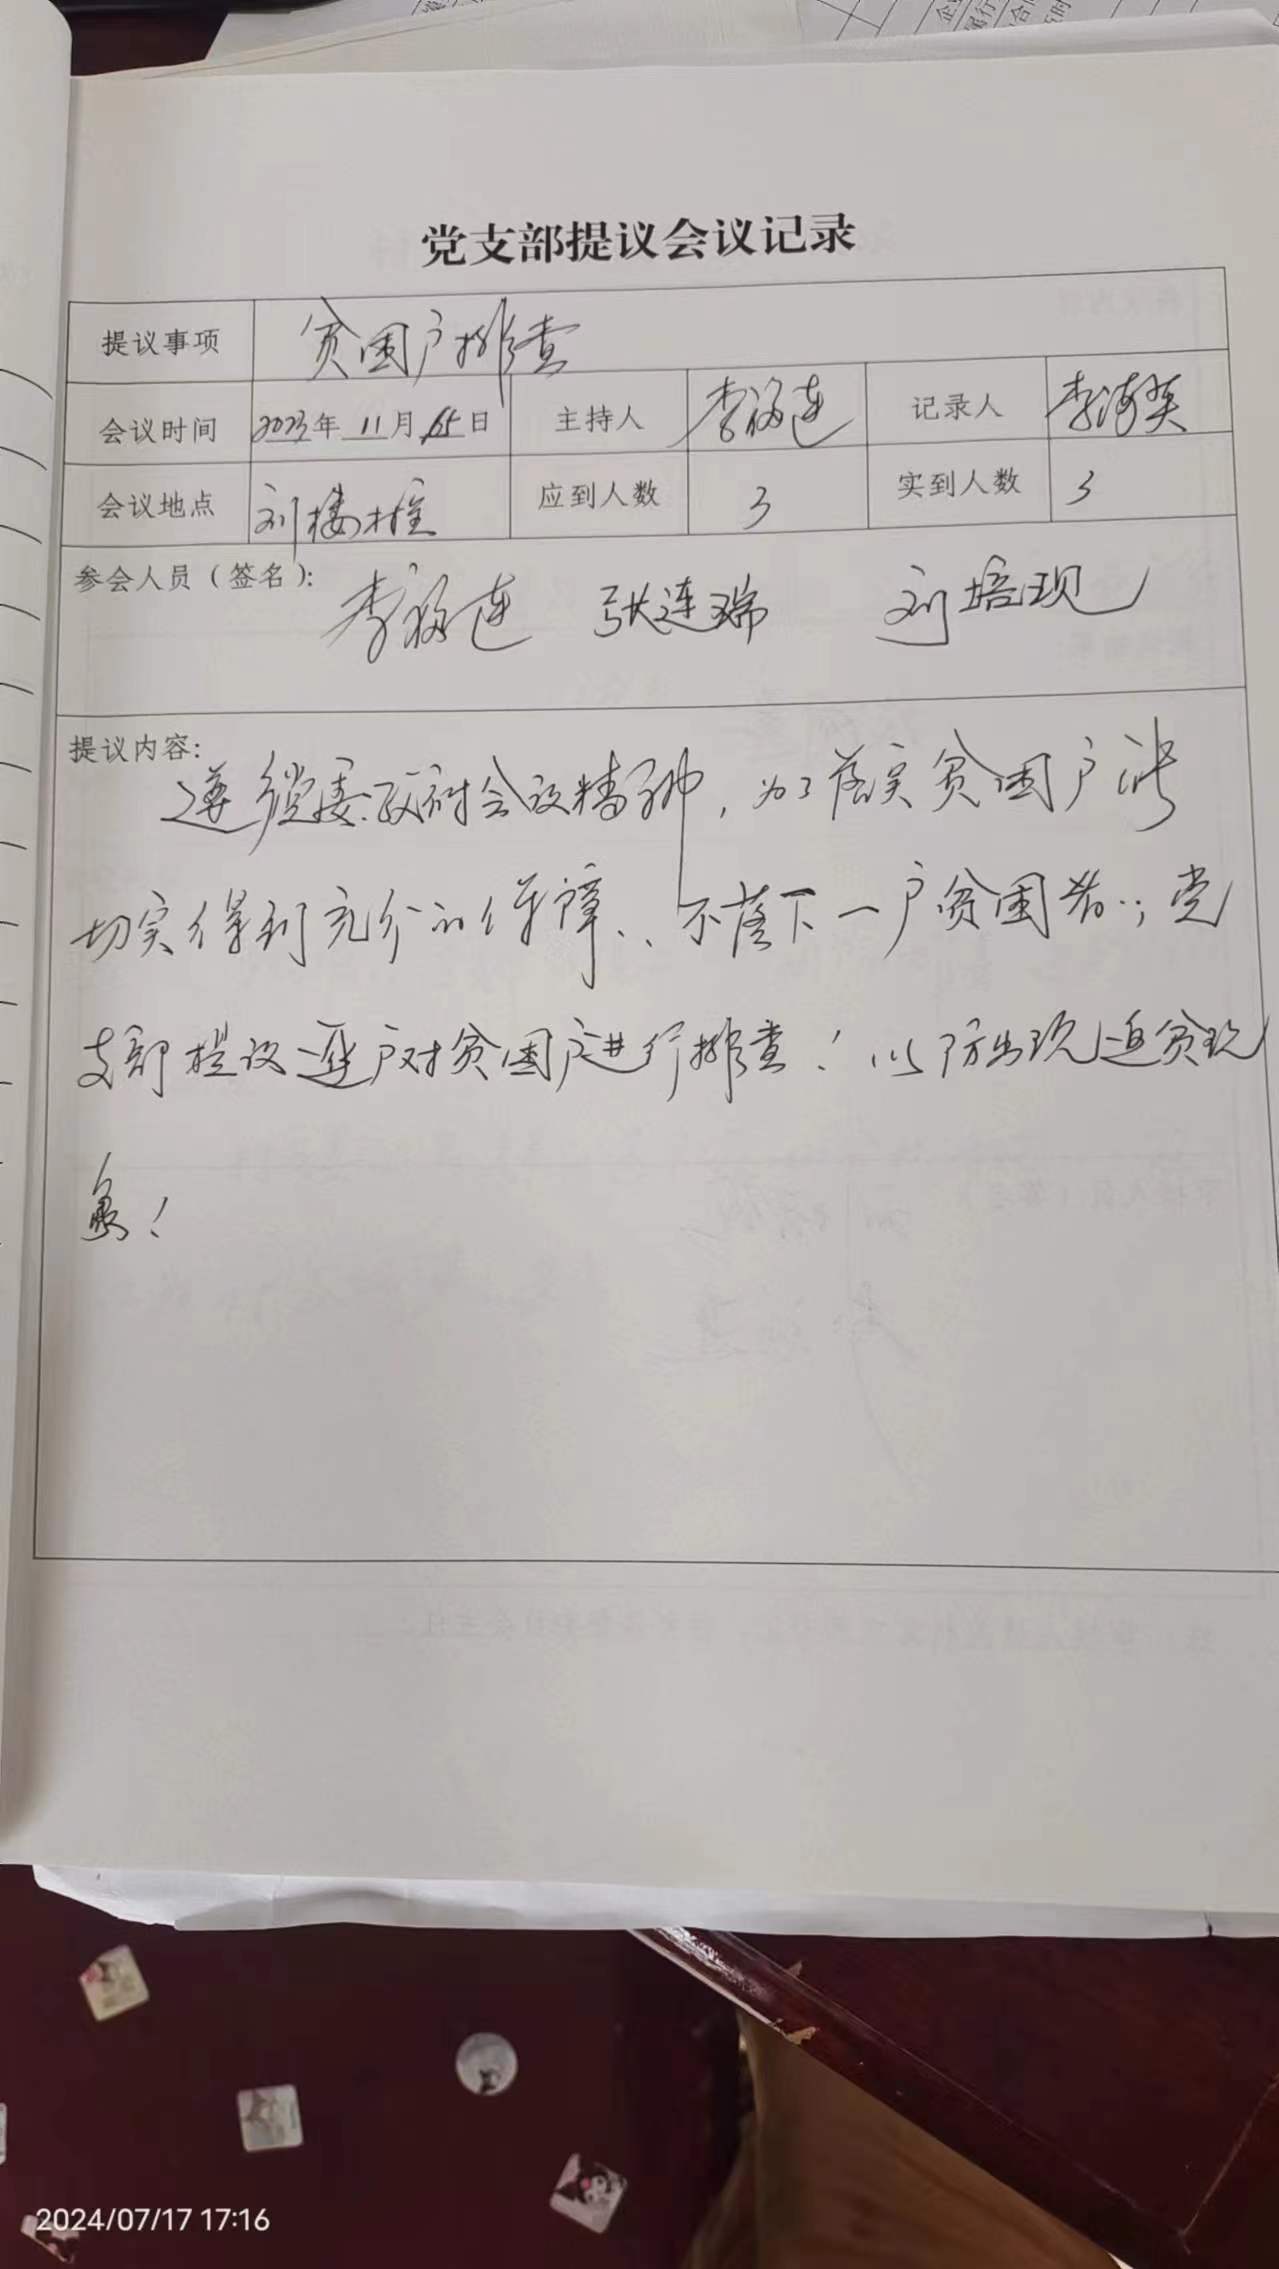 党支部提议会议记录
提议事项 贫困户排查
会议时间 2023年 11月 15日 主持人 李福连 记录人 李海英
会议地点 刘楼村室 应到人数 3 实到人数 3
参会人员（签名）： 李福连 张连瑞 刘培现
提议内容：
遵镇委.政府会议精神，为了落实贫困户
切实得到充分的保障.. 不落下一户贫困者.；党
支部提议逐户对贫困户进行排查！以防出现返贫现
象！
2024/07/17 17:16